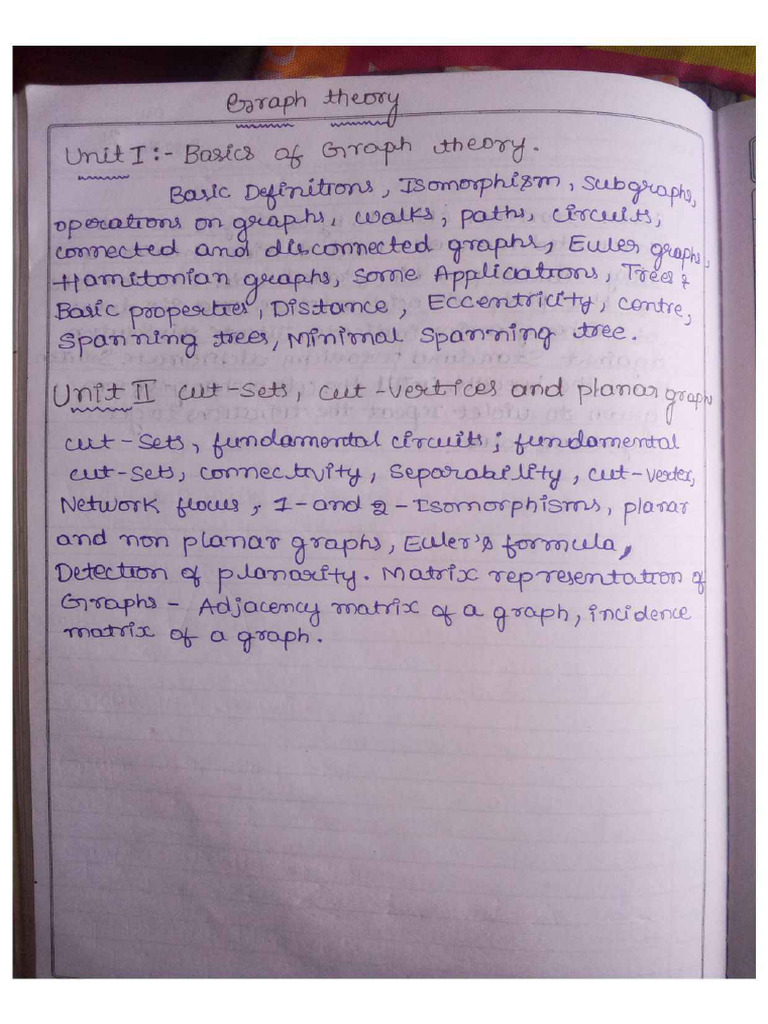 Graph theory
Unit I :- Basics of Graph theory.
Basic Definitions, Isomorphism, Subgraphs,
operations on graphs, walks, paths, circuits,
connected and disconnected graphs, Euler graphs,
Hamitonian graphs, some Applications, Trees &
Basic properties, Distance, Eccentricity, centre,
Spanning trees, Minimal Spanning tree.
Unit II cut-sets, cut-vertices and planar graph
cut-sets, fundamental circuits, fundamental
cut-sets, connectivity, Separability, cut-vertex,
Network flows, 1-and 2-Isomorphisms, planar
and non planar graphs, Euler's formula,
Detection of planarity. Matrix representation of
Graphs - Adjacency matrix of a graph, incidence
matrix of a graph.